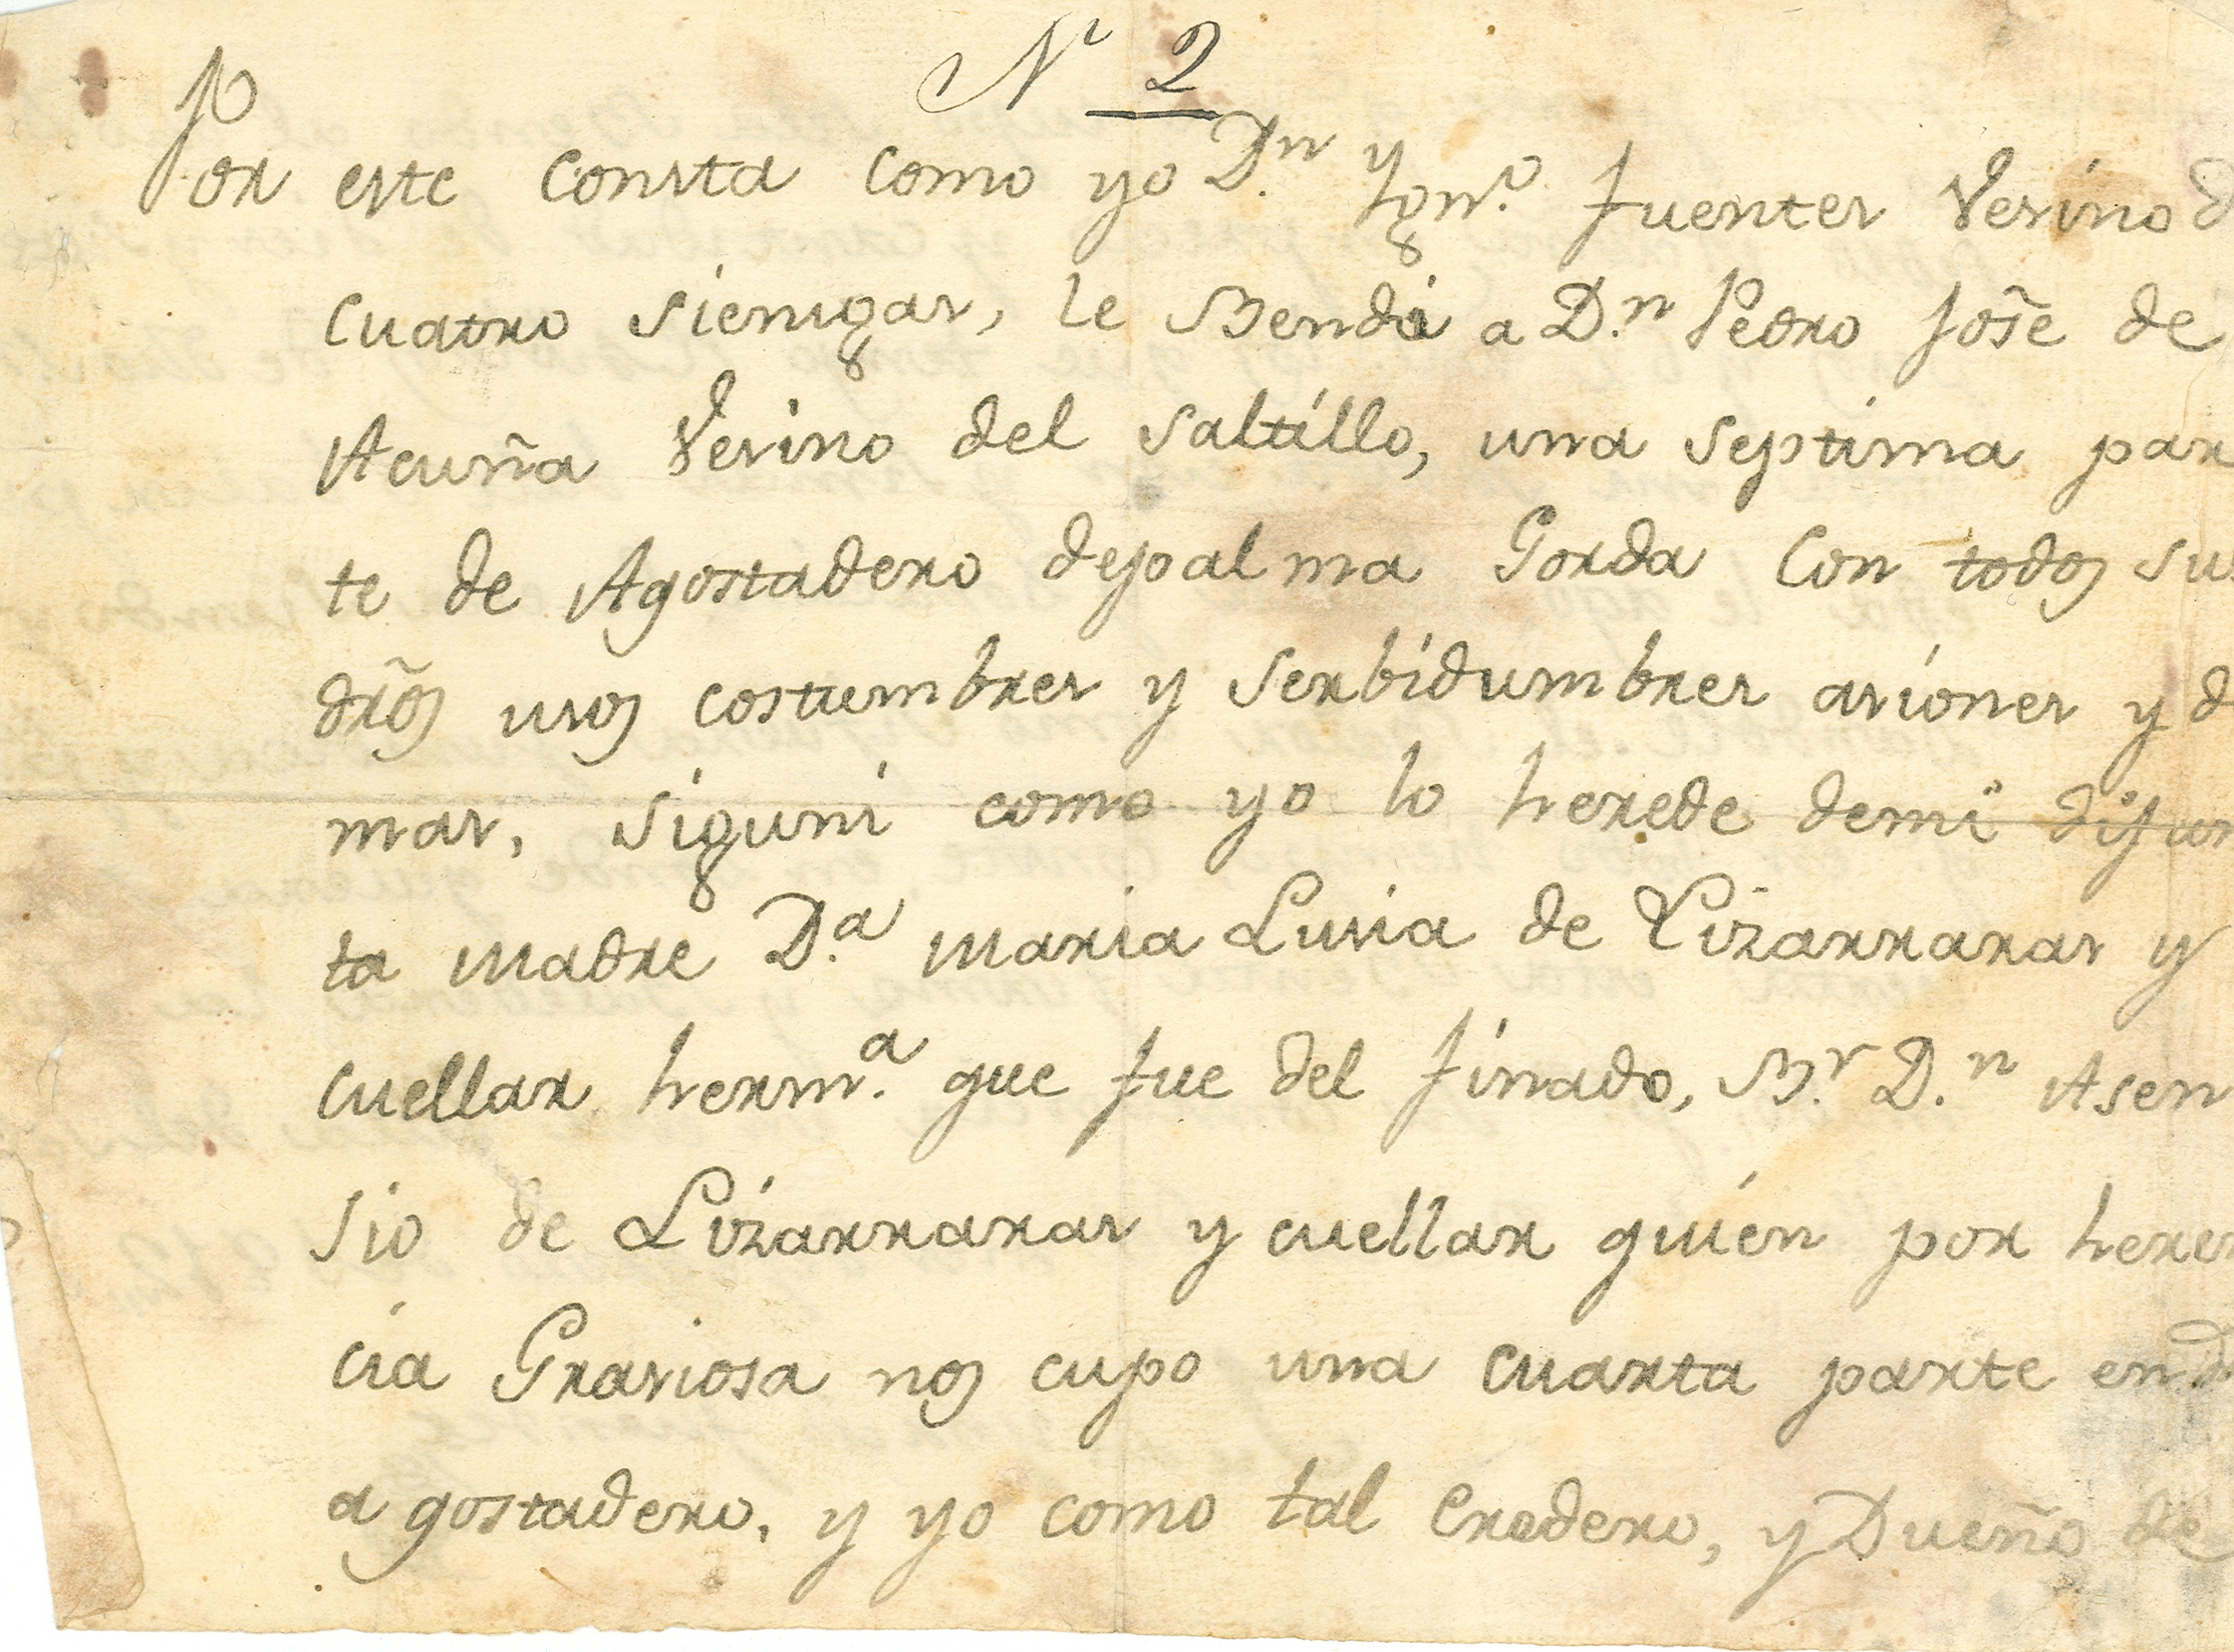 Nº 2
Por este consta como yo D.n Ygn.º fuentes Vesino d
cuatro sienigas, le Bendi a D.n Pedro Jose de
Acuña Vesino del Saltillo, una septima par
te de Agostadero depalma Gorda Con todos su
drõs usos costumbres y serbidumbres asiones y d
mas, sigun como yo lo herede demi difun
ta madre D.ª maria Luisa de Lizarraras y
cuellar herm.ª que fue del finado, B.r D.n Asen
sio de Lizarraras y cuellar quien por heren
cia Grasiosa nos cupo una cuarta parte en
agostadero, y yo como tal eredero, y Dueño de